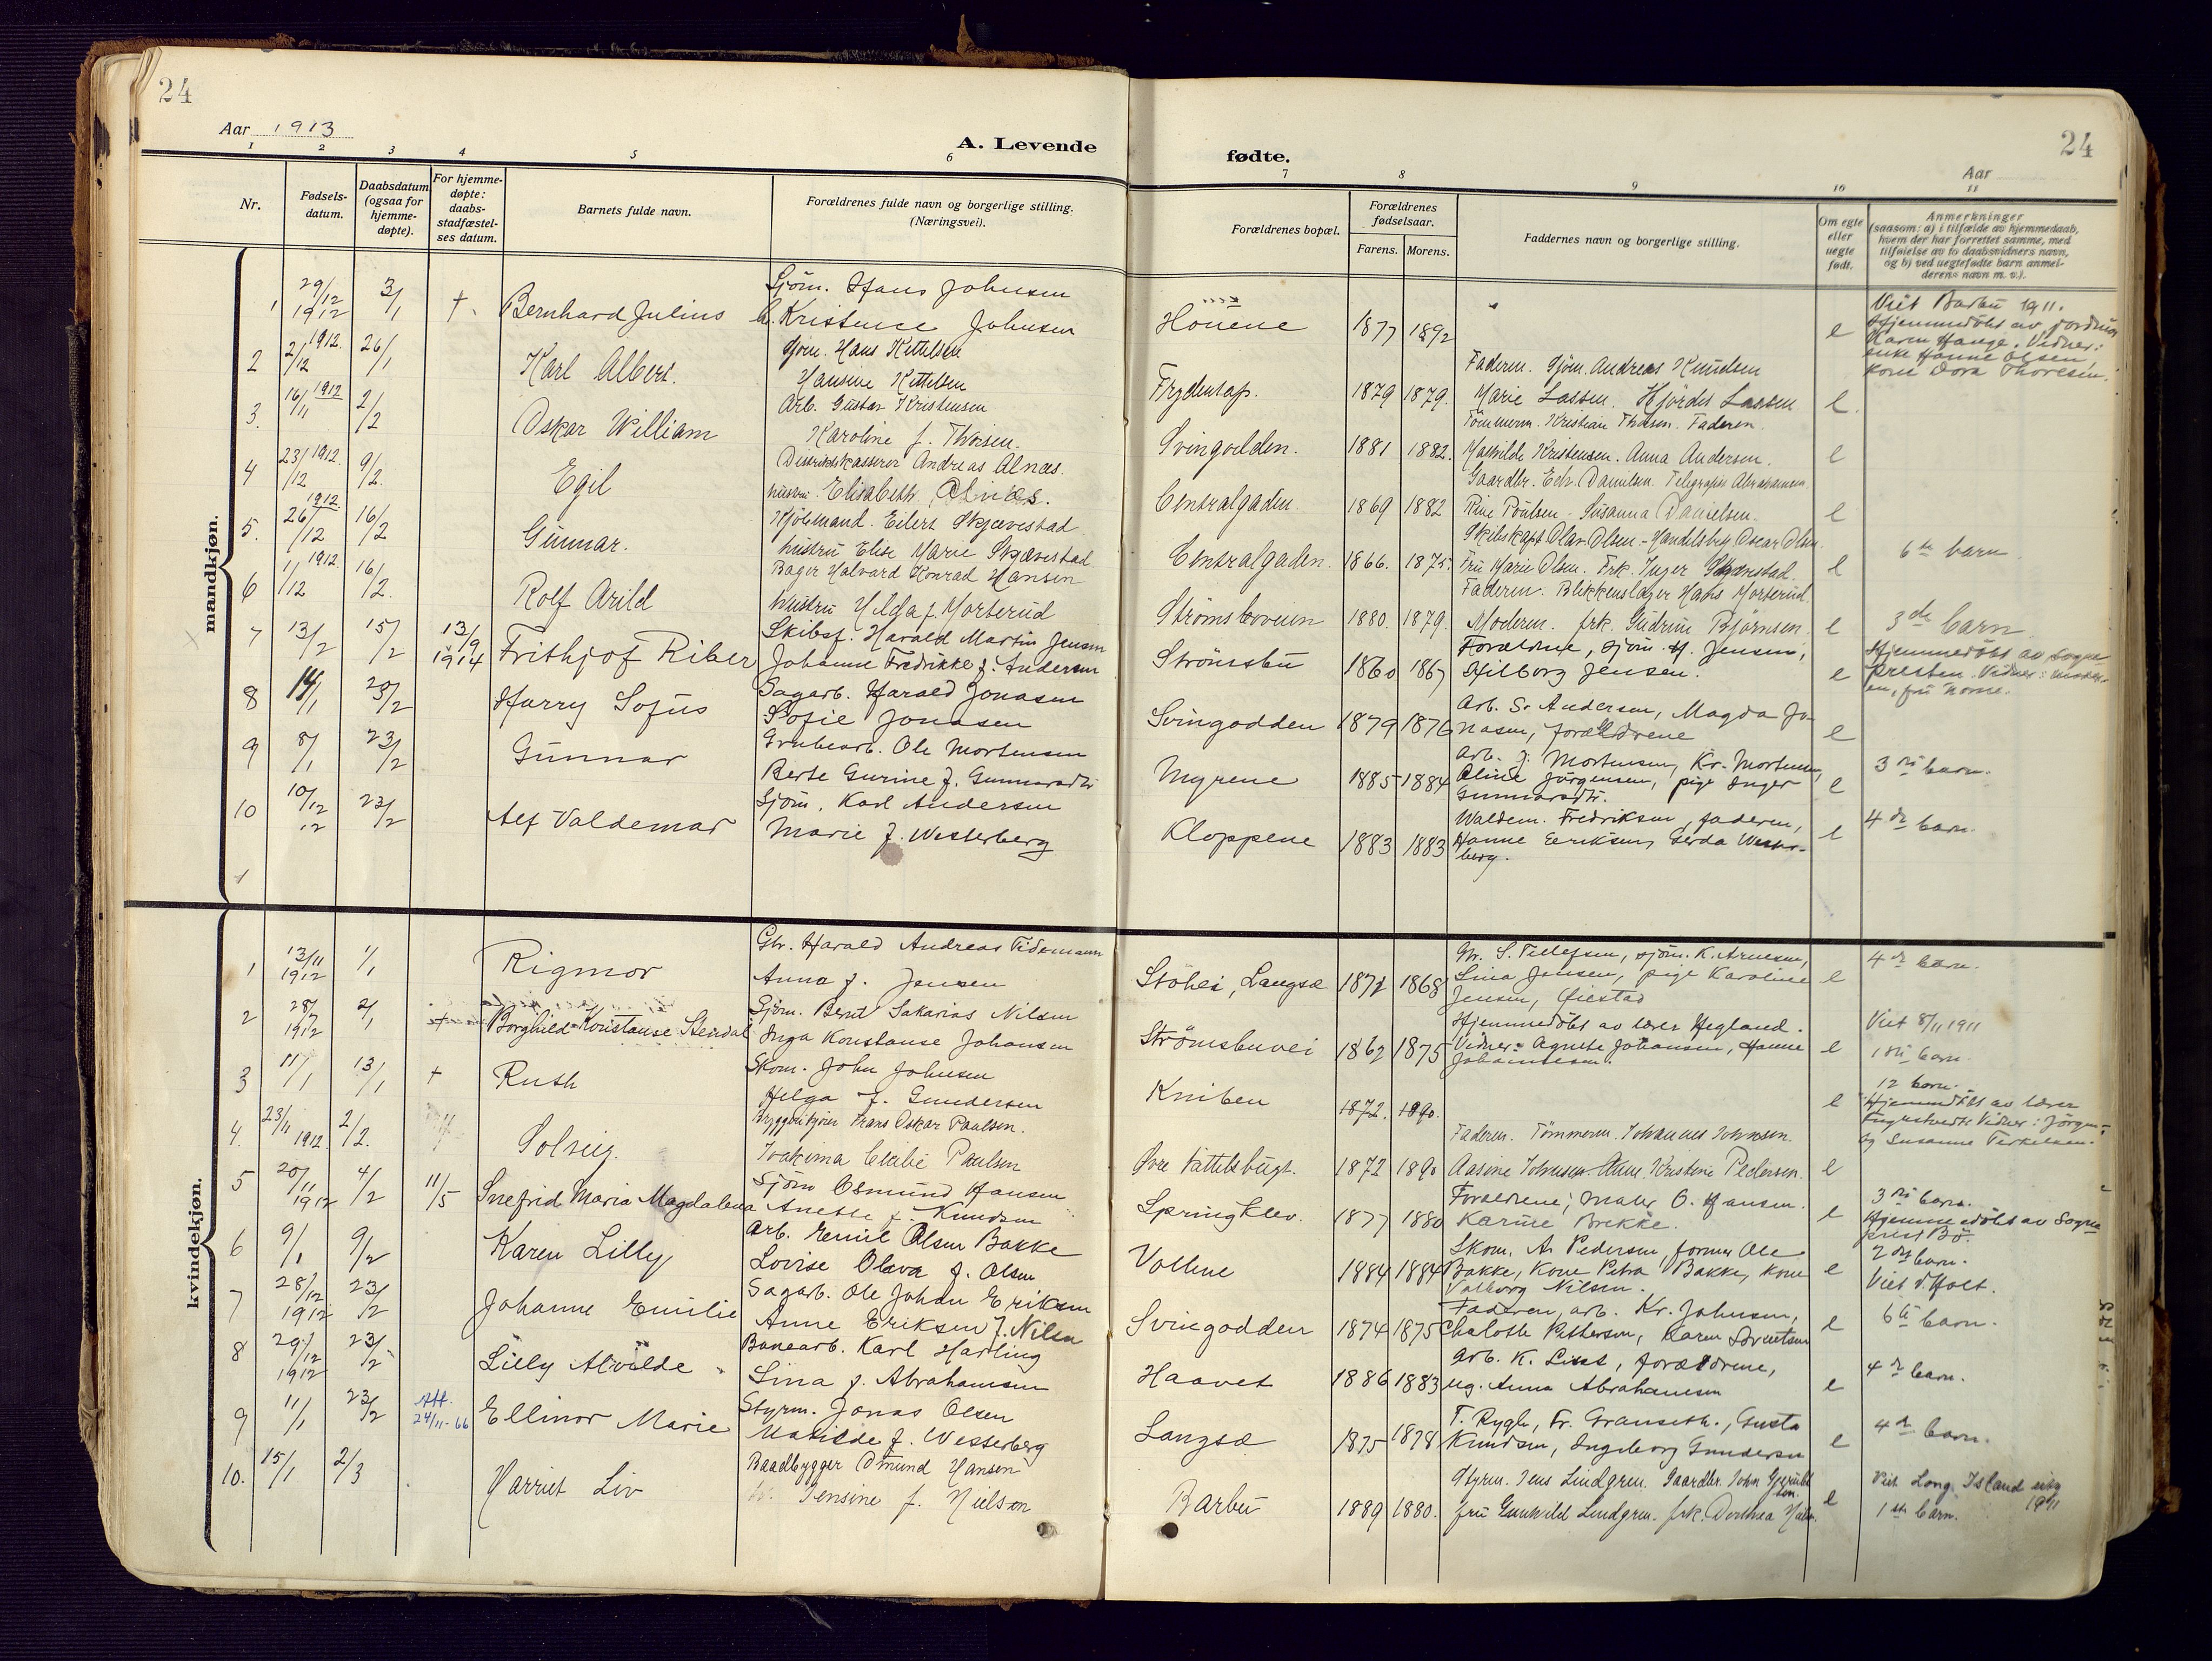 24
Aar 1913
A. Levende
fødte.
24
Aar
1 2 3 4 5 6 7 8 9 10 11
Nr.
Fødsels-
datum.
Daabsdatum
(ogsaa for
hjemme-
døpte).
For hjemme-
døpte:
daabs-
stadfæstel-
ses datum.
Barnets fulde navn.
Forældrenes fulde navn og borgerlige stilling.
(Næringsvei).
Forældrenes bopæl.
Forældrenes
fødselsaar.
Farens. Morens.
Faddernes navn og borgerlige stilling.
Om egte
eller
uegte
født.
Anmerkninger
(saasom: a) i tilfælde av hjemmedaab,
hvem der har forrettet samme, med
tilføielse av to daabsvidners navn,
og b) ved uegtefødte barn anmel-
derens navn m. v.).
mandkjøn.
1 29/12 1912 3/1 + Bernhard Julius
Sjøm. Hans Johnsen
Kristence Johnsen
Houene 1877 1892 e
Viet Barbu 1911.
Hjemmedöbt av jordmor
Karen Hauge. Vidner:
enke Hanne Olsen,
kone Dora Thoresen.
2 2/12 1912. 26/1 Karl Albert.
Sjøm. Hans Kittelsen
Hansine Kittelsen
Frydentop. 1879 1879.
Faderen. Sjøm. Andreas Knudsen
Marie Lassen. Hjördis Lassen e.
3. 16/11 1912 2/2 Oskar William
Arb. Gustav Kristensen
Karoline f. Thorsen.
Svingodden. 1881 1882.
Tömmerm. Kristian Thorsen. Faderen.
Mathilde Kristensen. Anna Andersen. e
4 23/12 1912. 9/2. Egil
Distriktskasserer Andreas Alnæs.
hustru. Elisabeth Alnæs.
Centralgaden. 1869 1882
Gaardbr. Edv. Danielsen. Telegrafist Abrahamsen
Rine Poulsen. Susanna Danielsen. e
5. 26/12 1912 16/2 Gunnar.
Kjöbmand. Eilert Skjævestad
hustru Elise Marie Skjævestad
Centralgaden. 1866. 1875.
Skibskapt Olav Olsen - Handelsbg Oscar Olsen.
Fru Marie Olsen. Frk. Inger Skjævestad. e
6te barn.
6 1/12 1912. 16/2. Rolf Arild
Bager Halvard Konrad Hansen
hustru Hilda f. Morterud
Strömsboveien 1880. 1879.
Faderen. Blikkenslager Hans Morterud.
Moderen. frk. Gudrun Bjørnsen. e
3de barn.
7 13/2 15/2 13/9 1914 Frithjof Riber
Skibsf. Harald Martin Jensen
Johanne Fredrikke f. Andersen
Strömsbu 1860 1867
Forældrene, sjøm. H. Jensen,
Hilborg Jensen. e
Hjemmedöbt av sogne-
presten. Vidner: moder-
en, fru Horne.
8 14/1 23/2 Harry Sofus
Sagarb. Harald Jonasen
Sofie Jonasen
Svingodden 1879 1876
Arb. S. Andersen, Magda Jo-
nasen, forældrene e
9 8/1 23/2 Gunnar
Grubearb. Ole Mortensen
Berte Gurine f. Gunnarsdtr
Myrene 1885 1884
Arb. J. Mortensen, Kr. Mortensen,
Oline Jörgensen, pige Inger
Gunnarsdtr. e
3die barn.
10 10/12 12 23/2 Alf Valdemar
Sjøm. Karl Andersen
Marie f. Westerberg
Kloppene 1883 1883
Waldem. Fredriksen, faderen,
Hanne Eeriksen, Gerda Wester-
berg. e
4de barn.
1
kvindekjøn.
1 13/11 1912 1/1 Rigmor
Gbr. Harald Andreas Tidemann
Anna f. Jensen
Stölei, Langsæ 1872 1868
Gbr. S. Tellefsen, sjøm. K. Arnesen,
Lina Jensen, pige Karoline
Jensen, Öiestad e
4de barn.
2 28/12 1912 2/1 + Borghild Konstanse Stendal
Sjøm. Bernt Sakarias Nilsen
Inga Konstanse Johansen
Strömsbuvei 1862 1875
Hjemmedöbt av lærer Hegland.
Vidner: Agnete Johansen, Hanne
Johannesen e
Viet 8/11 1911
1ste barn.
3 11/1 13/1 + Ruth
Skom. John Johnsen
Helga f. Gundersen
Kniben 1872. 1890. e
12 barn.
Hjemmedöbt av lærer
Engestvedt. Vidner: Jörgen
og Susanne Terkelsen.
4. 23/11 1912. 2/2. Solveig.
Bryggerikjører Frans Oskar Paulsen.
Joakima Cecilie Paulsen
Øvre Tattelsbugt. 1872 1890
Faderen. Tömmerm. Johannes Johnsen.
Aasine Johnsen. Anne Kristine Pedersen. e
5 20/11 1912 4/2 11/5 Snefrid Maria Magdalena
Sjøm. Osmund Hansen
Anette f. Knudsen
Springklev. 1877 1880
Forældrene, maler O. Hansen.
Karine Brekke. e
3die barn.
Hjemmedöbt av Sogne
prest Bö.
6 9/1 9/2 Karen Lilly
Arb. Emil Olsen Bakke
Lovise Olava f. Olsen
Vollene 1884 1884
Skom. A. Pedersen, former Ole
Bakke, kone Petra Bakke, kone
Valborg Nilsen. e
2det barn.
Viet i Holt.
7 28/12 1912 23/2 Johanne Emilie
Sagarb. Ole Johan Eriksen
Anne Eriksen f. Nilsen
Svingodden 1874 1875
Faderen, arb. Kr. Johnsen,
Chalotte Pettersen, Karen Syvertsen e
6te barn.
8 29/12 1912 23/2 Lilly Alvilde
Banearb. Karl Harling
Lina f. Abrahamsen
Haavet 1886 1883
Arb. K. List, forældrene,
ug. Anna Abrahamsen e
4de barn.
9 11/1 23/2 Att. 24/11-66 Ellinor Marie
Styrm. Jonas Olsen
Matilde f. Westerberg
Langsæ 1875 1878
T. Rygh, Fr. Granseth., Gusta
Knudsen, Ingeborg Gundersen e
4de barn.
10. 15/1 2/3 Harriet Liv
Baadbygger Omund Hansen
Jensine f. Nielsen
Barbu 1889 1880.
Styrm. Jens Lindgren. Gaardbr. John Gjeruldsen.
fru Gunhild Lindgren. frk. Dorthea Nielsen. e
Viet Long Island city
1911
1ste barn.